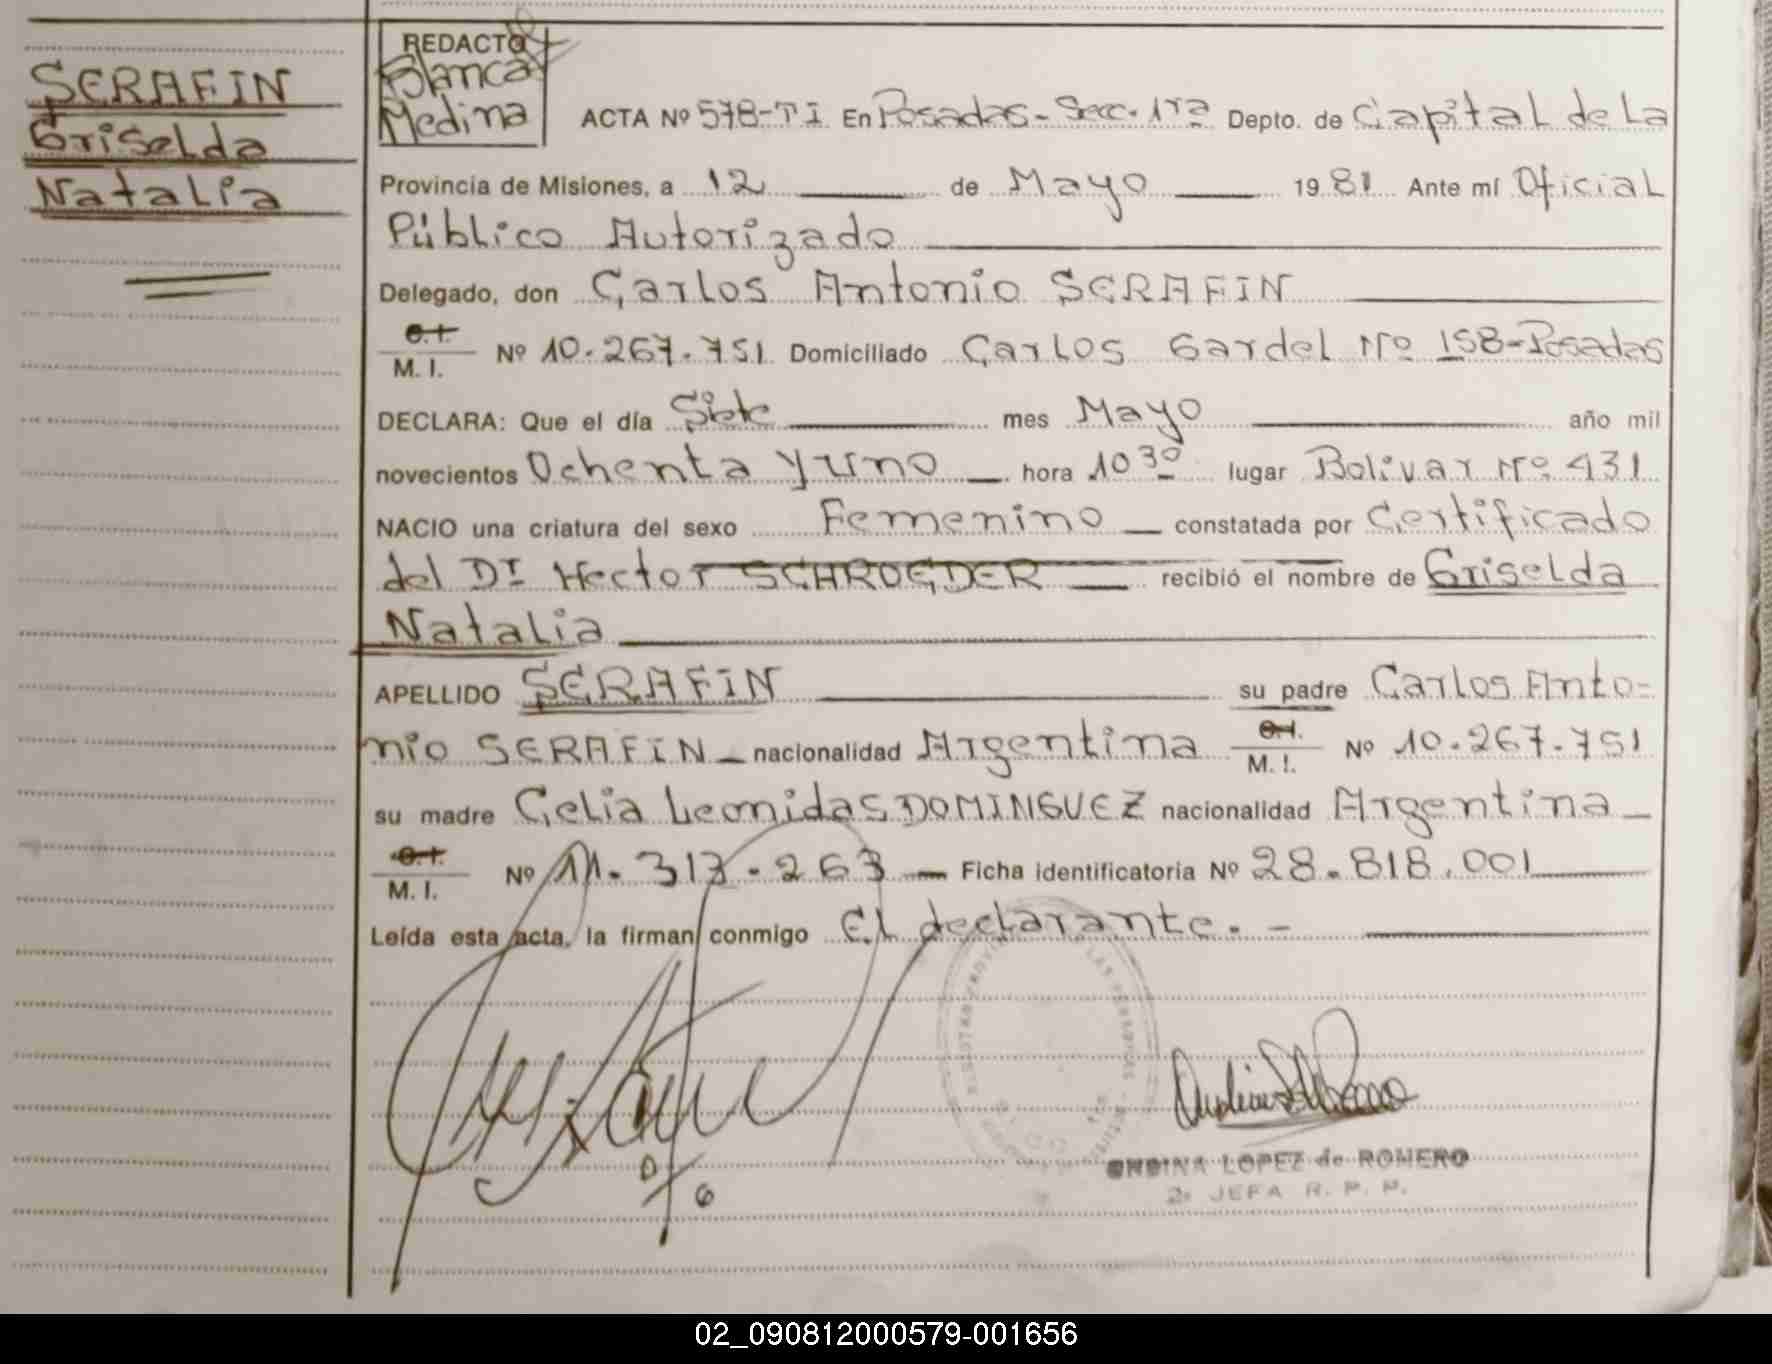 SERAFIN
Griselda
Natalia
REDACTO
Blanca
Medina
ACTA Nº 578-TI En Posadas - Secc. 1ra Depto. de Capital de La
Provincia de Misiones, a 12 de Mayo 1981 Ante mí Oficial
Público Autorizado
Delegado, don Carlos Antonio SERAFIN
C.I.
M. I. Nº 10.267.751 Domiciliado Carlos Gardel Nº 158-Posadas
DECLARA: Que el día Siete mes Mayo año mil
novecientos Ochenta y uno hora 10 30 lugar Bolivar Nº 431
NACIO una criatura del sexo Femenino constatada por Certificado
del Dr Hector SCHROEDER recibió el nombre de Griselda
Natalia
APELLIDO SERAFIN su padre Carlos Anto-
nio SERAFIN nacionalidad Argentina C.I. M. I. Nº 10.267.751
su madre Celia Leonidas DOMINGUEZ nacionalidad Argentina
C.I.
M. I. Nº 11.313.263 Ficha identificatoria Nº 28.818.001
Leída esta acta, la firman conmigo El declarante. -
ONDINA LOPEZ de ROMERO
2a JEFA R. P. P.
02_090812000579-001656